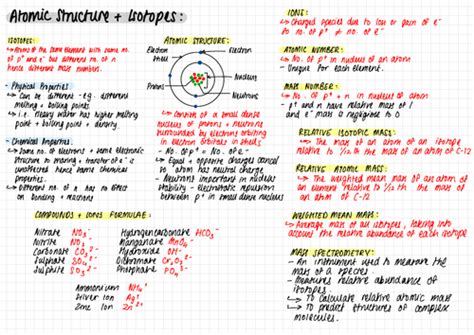 Atomic Structure + Isotopes:
ISOTOPES:
• Atoms of the same element with same no. of p⁺ and e⁻ but different no. of n hence different mass numbers.
- Physical Properties
↳ Can be different e.g. different melting + boiling points
↳ i.e. heavy water has higher melting point + boiling point + density.
- Chemical Properties:
↳ Same no. of electrons + same electronic structure so
↳ Different no. of n has no effect on bonding + reactions
ATOMIC STRUCTURE:
Electron Shell
Electron
Nucleus
Protons
Neutrons
↳ Consists of a small dense nucleus of protons + neutrons surrounded by electrons orbiting in electron orbitals in shells
- No. of p⁺ = No. of e⁻
↳ Equal + opposite charges cancel so atom has neutral charge
- Neutrons important in nucleus stability - Electrostatic repulsion between p⁺ in small dense nucleus
COMPOUNDS + IONS FORMULAE:
Nitrate NO₃⁻
Nitrite NO₂⁻
Carbonate CO₃²⁻
Sulphate SO₄²⁻
Sulphite SO₃²⁻
Hydrogencarbonate HCO₃⁻
Manganate MnO₄⁻
Hydroxide OH⁻
Dichromate Cr₂O₇²⁻
Phosphate PO₄³⁻
Ammonium NH₄⁺
Silver Ion Ag⁺
Zinc Ion Zn²⁺
IONS:
↳ Charged species due to loss or gain of e⁻ so no. of p⁺ ≠ no. of e⁻
ATOMIC NUMBER:
↳ No. of p⁺ in nucleus of an atom
- Unique for each element.
MASS NUMBER:
↳ No. of p⁺ + n in nucleus of atom
- p⁺ and n have relative mass of 1 and e⁻ mass is negligible so 0
RELATIVE ISOTOPIC MASS:
↳ The mass of an atom of an isotope relative to 1/12 th the mass of an atom of C-12
RELATIVE ATOMIC MASS:
↳ The weighted mean mass of an atom of an element relative to 1/12 th the mass of an atom of C-12
WEIGHTED MEAN MASS:
↳ Average mass of all isotopes, taking into account the relative abundance of each isotope
MASS SPECTROMETRY:
- An instrument used to measure the mass of a species.
- Measures relative abundance of isotopes.
↳ To calculate relative atomic mass
↳ To predict structures of complex molecules.